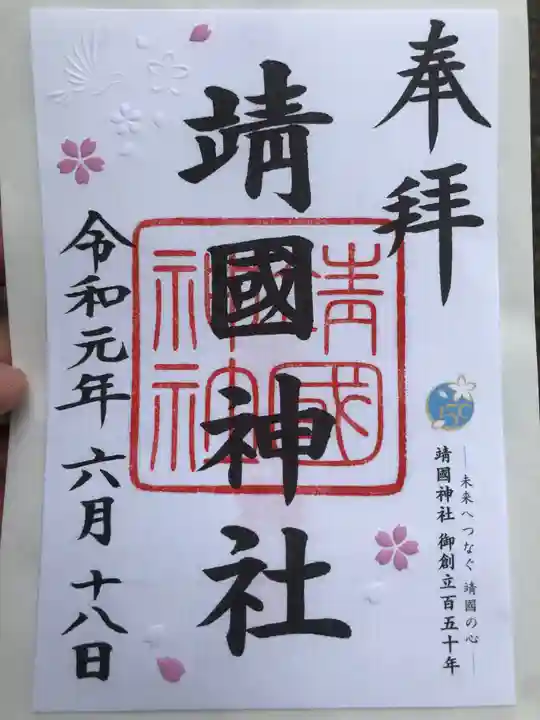 奉拝
150
―未来へつなぐ 靖國の心―
靖國神社 御創立百五十年
靖國神社
靖國
神社
令和元年 六月 十八日